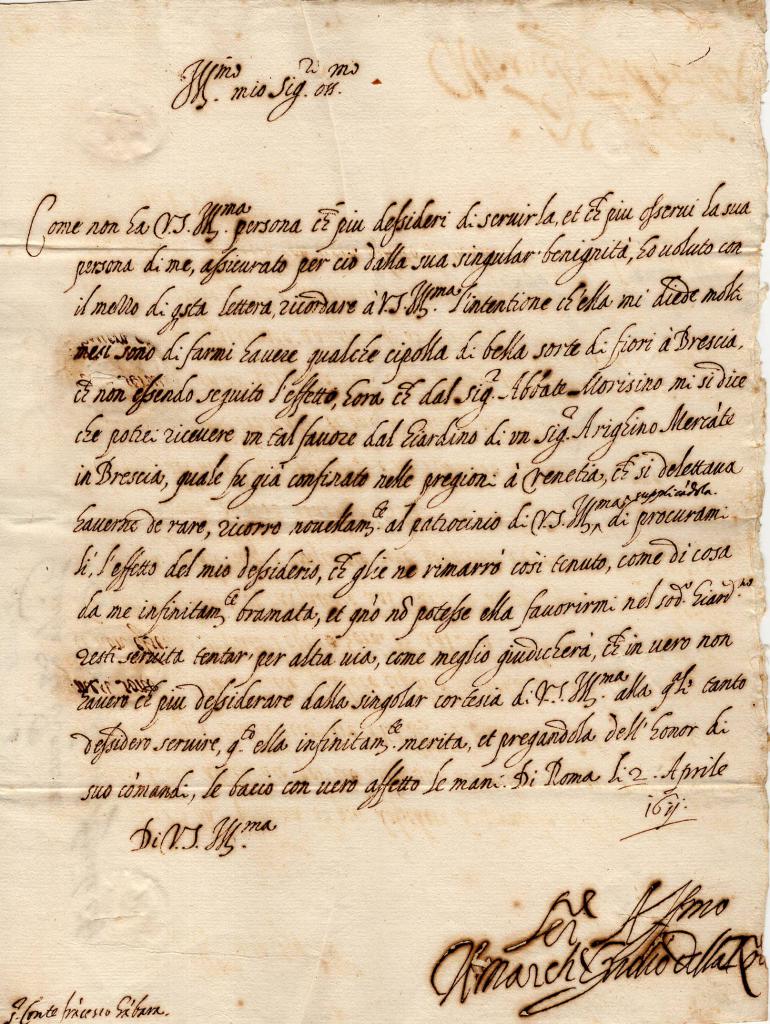 Ill.mo mio Sig.r oss.mo
Come non ha V.S. Ill.ma persona ch più dessideri di servirla, et ch più osservi la sua
persona di me, assicurato per ciò dalla sua singular benignità, ho voluto con
il mezzo di qsta lettera, ricordare à V.S. Ill.ma l'intentione ch'ella mi diede molti
mesi sono di farmi havere qualche cipolla di bella sorte di fiori à Brescia,
ch non essendo seguito l'effetto, hora ch dal sig.r Abbate Morisino mi si dice
che potrei ricevere un tal favore dal Giardino di un sig.r Arighino Mercāte
in Brescia, quale fu già confinato nelle pregioni à Venetia, ch si delettava
haverne de rare, ricorro novellam.te al patrocinio di V.S. Ill.ma supplicādola di procurarmi
li, l'effetto del mio dessiderio, ch glie ne rimarrò così tenuto, come di cosa
da me infinitam.te bramata, et qn̄o nō potesse ella favorirmi nel sod.o Giard.no
resti servita tentar per altra via, come meglio giudicherà, ch in vero non
haverò ch più dessiderare dalla singolar cortesia di V.S. Ill.ma alla qle tanto
dessidero servire, q.to ella infinitam.te merita, et pregandola dell'honor di
suoi comandi, le bacio con vero affetto le mani. Di Roma li 2. Aprile
1611.
Di V.S. Ill.ma
Ser.re Aff.mo
Il March
S.r Conte frācesco Gābara.